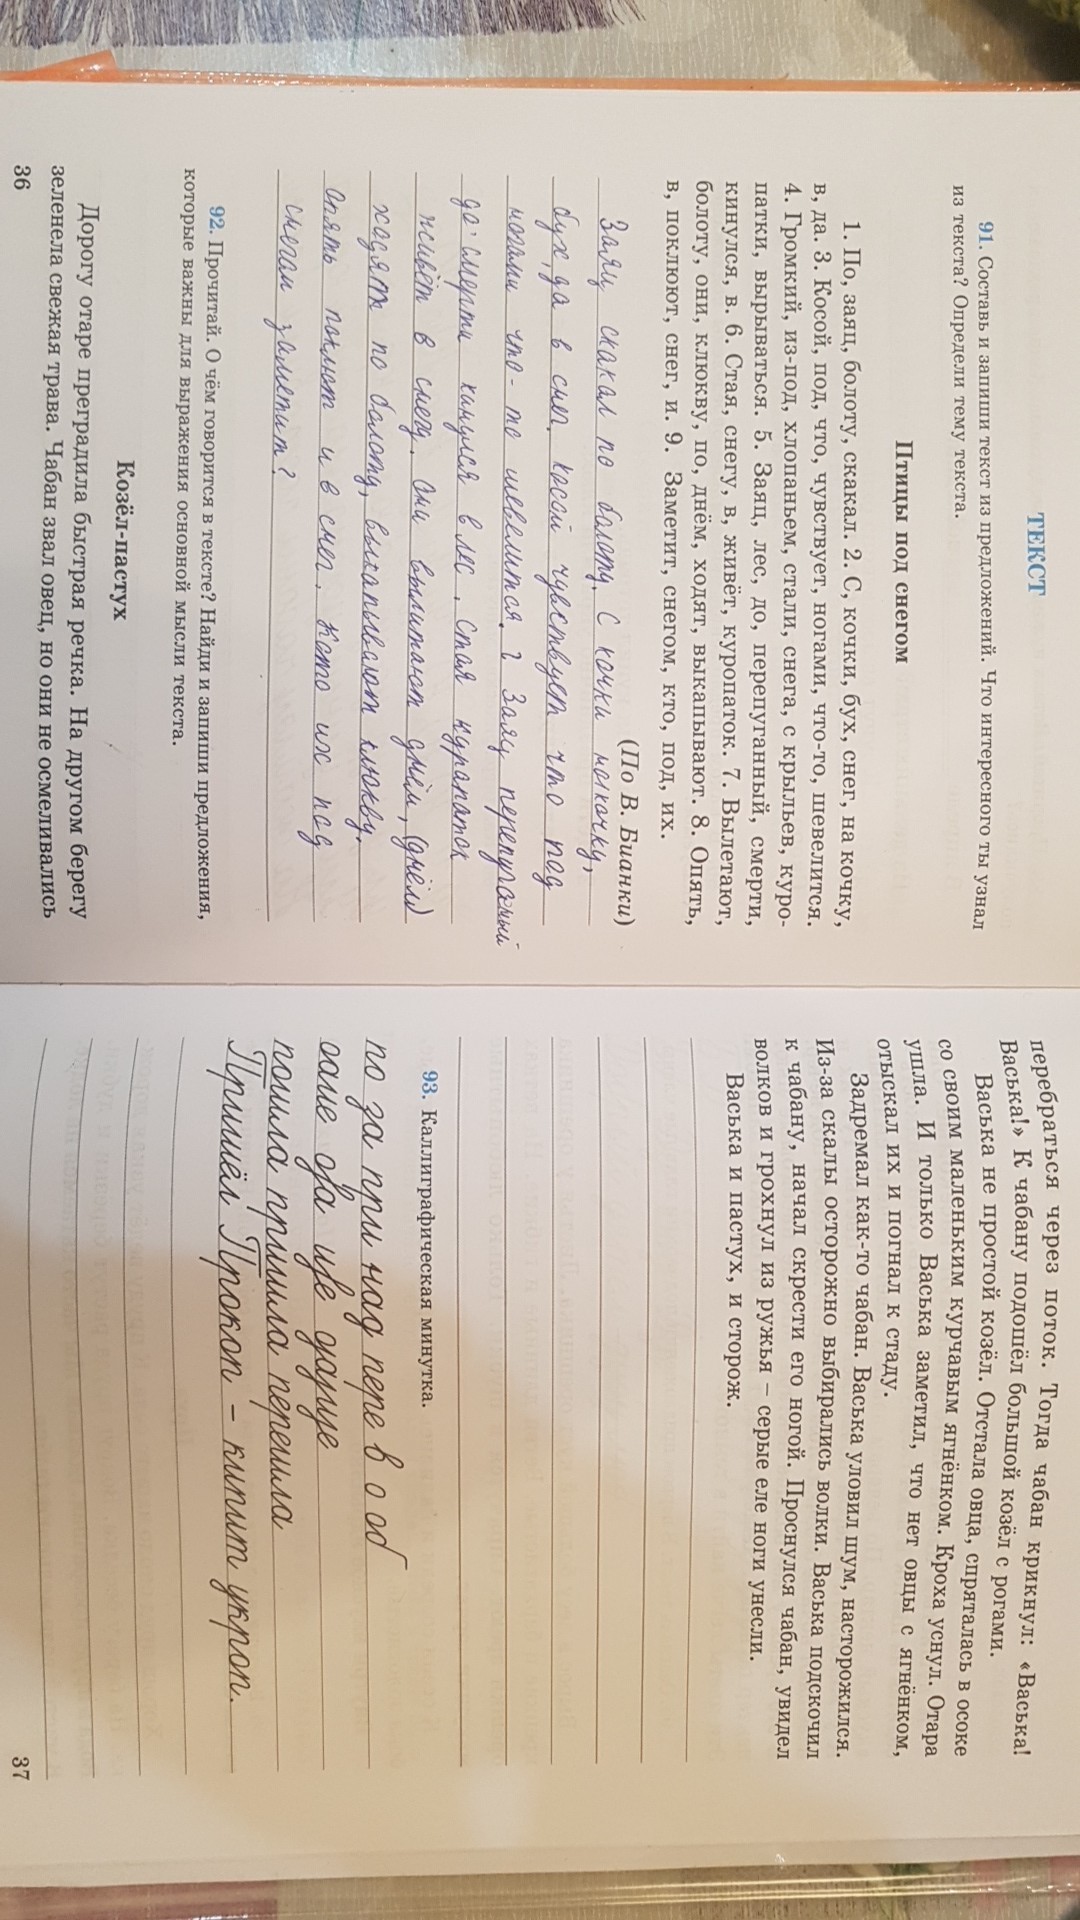 ТЕКСТ
91. Составь и запиши текст из предложений. Что интересного ты узнал
из текста? Определи тему текста.
Птицы под снегом
1. По, заяц, болоту, скакал. 2. С, кочки, бух, снег, на кочку,
в, да. 3. Косой, под, что, чувствует, ногами, что-то, шевелится.
4. Громкий, из-под, хлопаньем, стали, снега, с крыльев, куро-
патки, вырываться. 5. Заяц, лес, до, перепуганный, смерти,
кинулся, в. 6. Стая, снегу, в, живёт, куропаток. 7. Вылетают,
болоту, они, клюкву, по, днём, ходят, выкапывают. 8. Опять,
в, поклюют, снег, и. 9. Заметит, снегом, кто, под, их.
(По В. Бианки)
Заяц скакал по болоту. С кочки на кочку,
бух, да в снег. косой чувствует что под
ногами что-то шевелится. Заяц перепуганый
до смерти кинулся в лес. стая курапаток
живёт в снегу. они вылитают днём, (днём)
хадять по болоту, выкапывают клюкву.
опять поклют и в снег. Кото их под
снегам заметит?
92. Прочитай. О чём говорится в тексте? Найди и запиши предложения,
которые важны для выражения основной мысли текста.
Козёл-пастух
Дорогу отаре преградила быстрая речка. На другом берегу
зеленела свежая трава. Чабан звал овец, но они не осмеливались
36
перебраться через поток. Тогда чабан крикнул: «Васька!
Васька!» К чабану подошёл большой козёл с рогами.
Васька не простой козёл. Отстала овца, спряталась в осоке
со своим маленьким курчавым ягнёнком. Кроха уснул. Отара
ушла. И только Васька заметил, что нет овцы с ягнёнком,
отыскал их и погнал к стаду.
Задремал как-то чабан. Васька уловил шум, насторожился.
Из-за скалы осторожно выбирались волки. Васька подскочил
к чабану, начал скрести его ногой. Проснулся чабан, увидел
волков и грохнул из ружья – серые еле ноги унесли.
Васька и пастух, и сторож.
93. Каллиграфическая минутка.
по за при над пере в о об
оаие ова иве дарце
пошла пришла перешла
Пришёл Прокоп – кипит укроп.
37